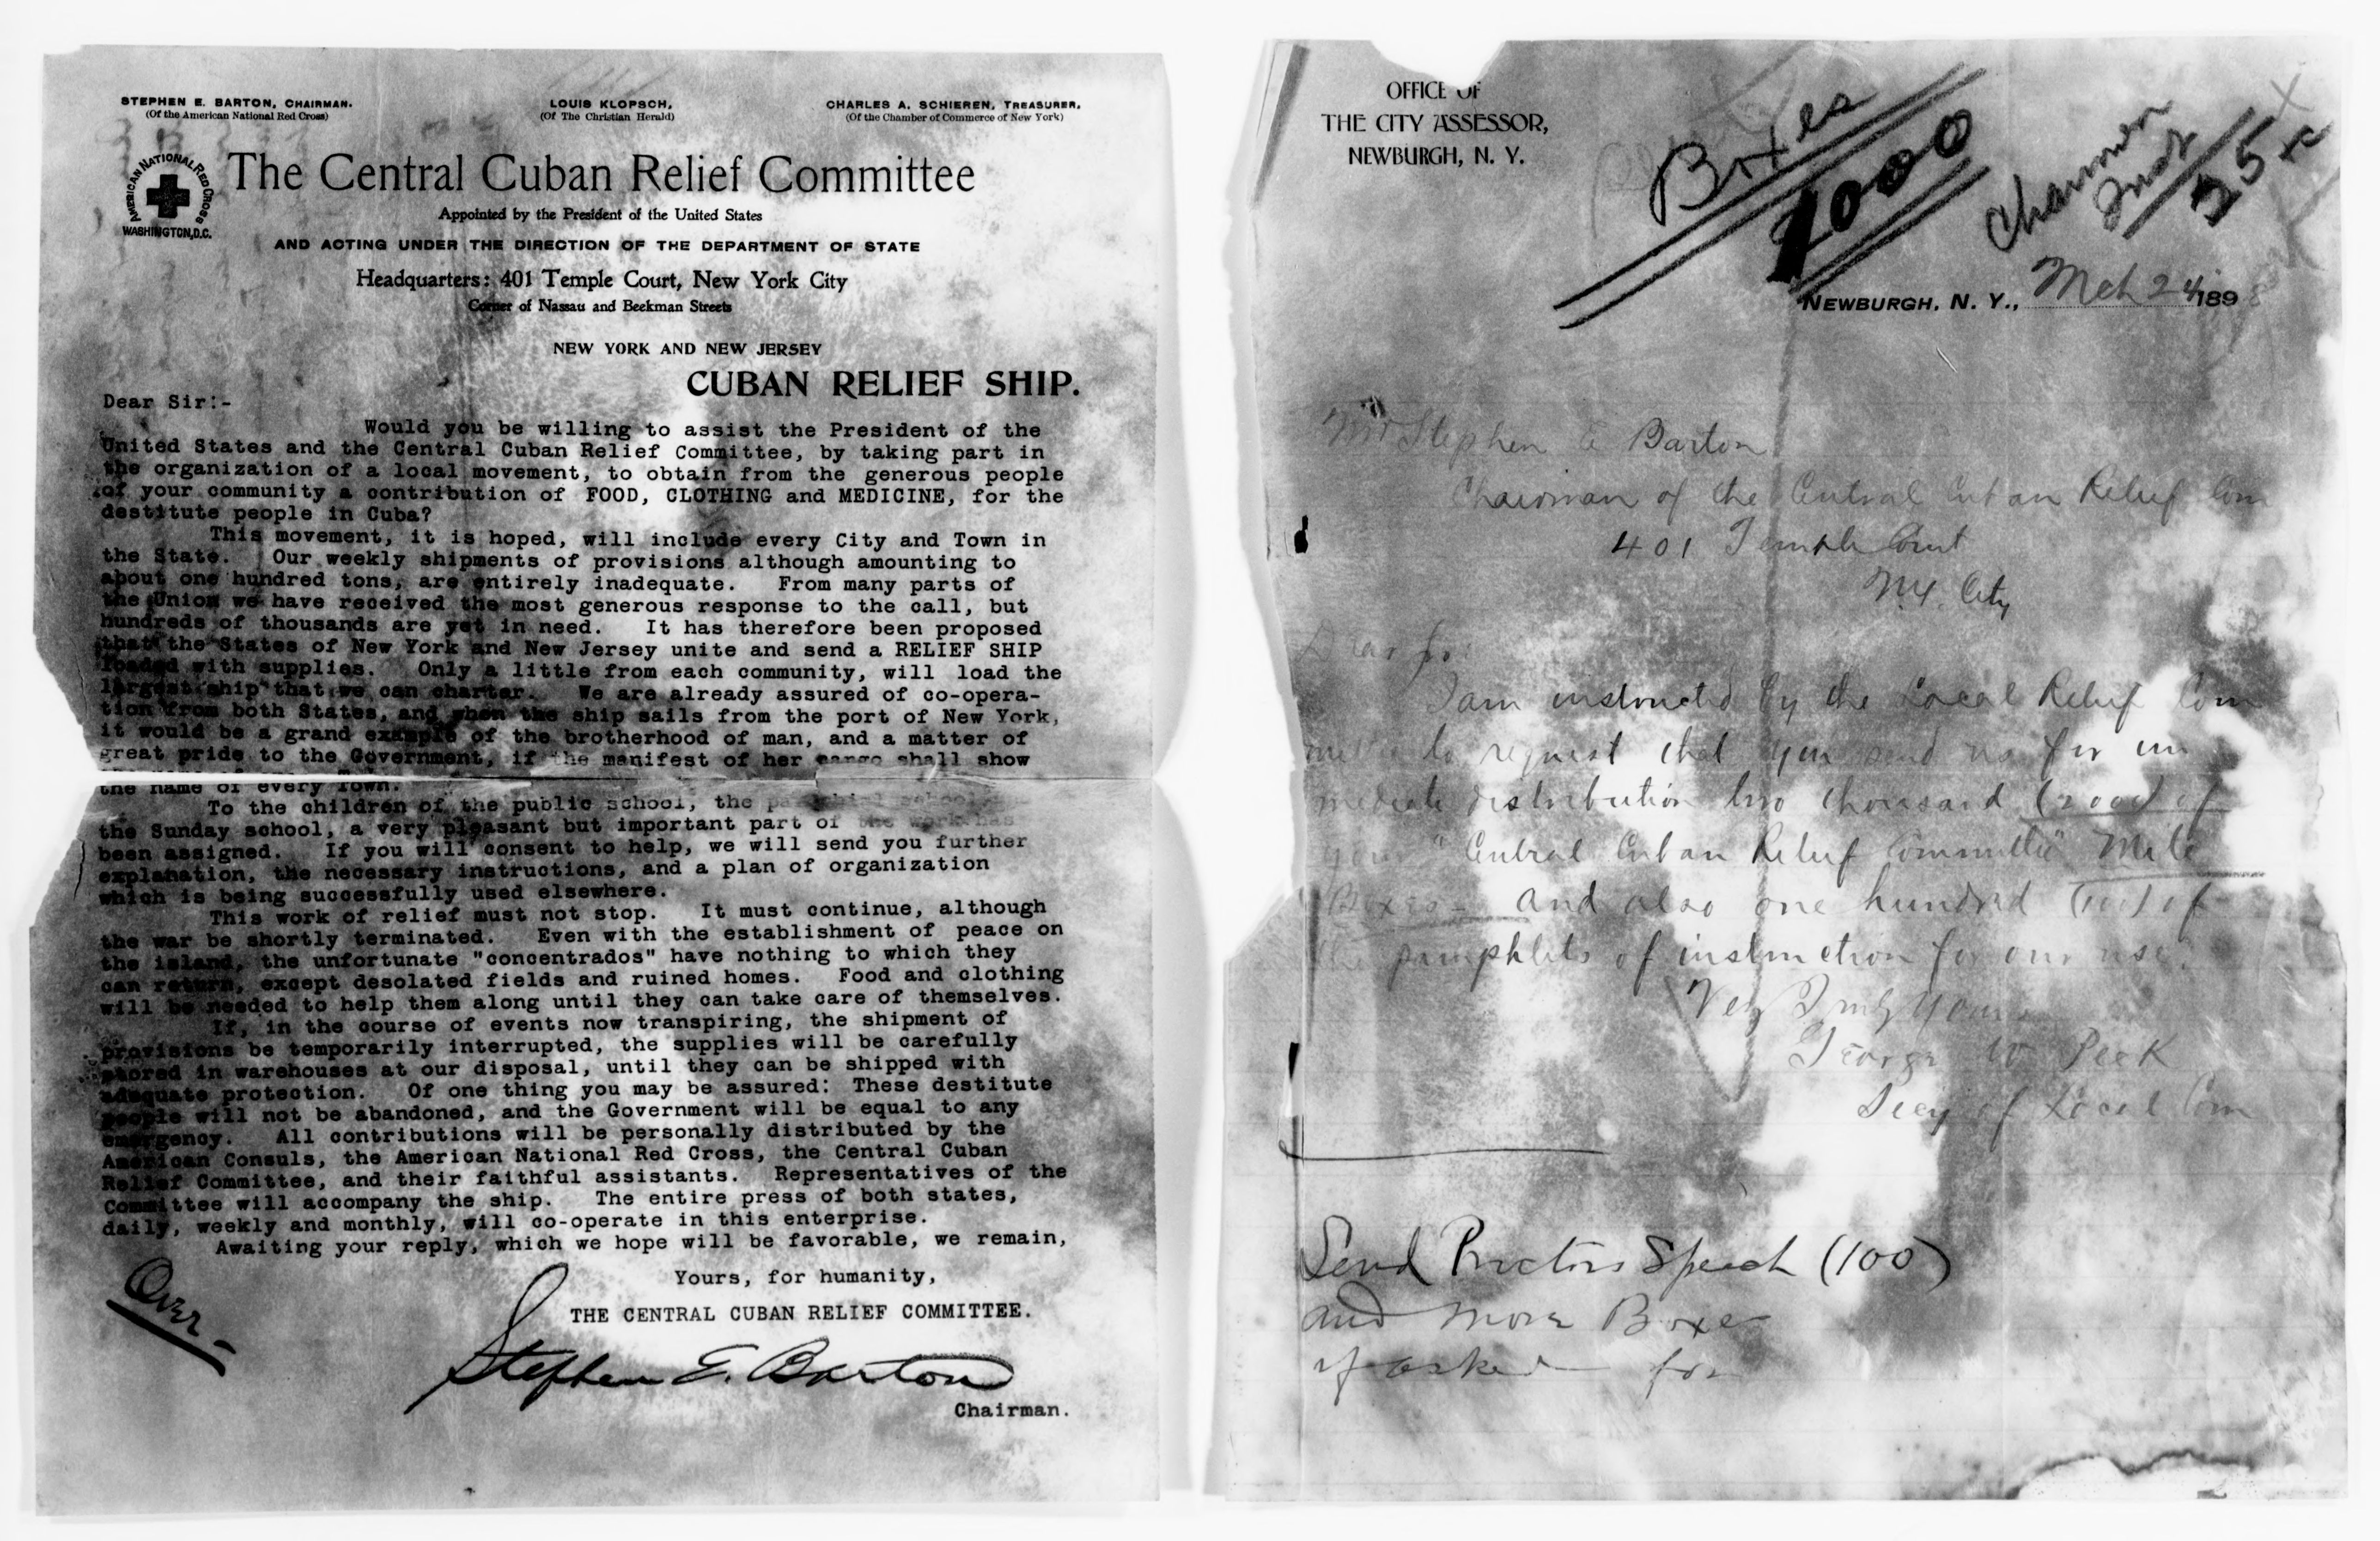 STEPHEN E. BARTON, CHAIRMAN.
(Of the American National Red Cross)
LOUIS KLOPSCH,
(Of The Christian Herald)
CHARLES A. SCHIEREN, TREASURER,
(Of the Chamber of Commerce of New York)
AMERICAN NATIONAL RED CROSS
WASHINGTON, D.C.
The Central Cuban Relief Committee
Appointed by the President of the United States
AND ACTING UNDER THE DIRECTION OF THE DEPARTMENT OF STATE
Headquarters: 401 Temple Court, New York City
Corner of Nassau and Beekman Streets
NEW YORK AND NEW JERSEY
CUBAN RELIEF SHIP.
Dear Sir:-
Would you be willing to assist the President of the
United States and the Central Cuban Relief Committee, by taking part in
the organization of a local movement, to obtain from the generous people
of your community a contribution of FOOD, CLOTHING and MEDICINE, for the
destitute people in Cuba?
This movement, it is hoped, will include every City and Town in
the State. Our weekly shipments of provisions although amounting to
about one hundred tons, are entirely inadequate. From many parts of
the Union we have received the most generous response to the call, but
hundreds of thousands are yet in need. It has therefore been proposed
that the States of New York and New Jersey unite and send a RELIEF SHIP
loaded with supplies. Only a little from each community, will load the
largest ship that we can charter. We are already assured of co-opera-
tion from both States, and when the ship sails from the port of New York,
it would be a grand example of the brotherhood of man, and a matter of
great pride to the Government, if the manifest of her cargo shall show
the name of every Town.
To the children of the public school, the parochial school,
the Sunday school, a very pleasant but important part of the work has
been assigned. If you will consent to help, we will send you further
explanation, the necessary instructions, and a plan of organization
which is being successfully used elsewhere.
This work of relief must not stop. It must continue, although
the war be shortly terminated. Even with the establishment of peace on
the island, the unfortunate "concentrados" have nothing to which they
can return, except desolated fields and ruined homes. Food and clothing
will be needed to help them along until they can take care of themselves.
If, in the course of events now transpiring, the shipment of
provisions be temporarily interrupted, the supplies will be carefully
stored in warehouses at our disposal, until they can be shipped with
adequate protection. Of one thing you may be assured: These destitute
people will not be abandoned, and the Government will be equal to any
emergency. All contributions will be personally distributed by the
American Consuls, the American National Red Cross, the Central Cuban
Relief Committee, and their faithful assistants. Representatives of the
Committee will accompany the ship. The entire press of both states,
daily, weekly and monthly, will co-operate in this enterprise.
Awaiting your reply, which we hope will be favorable, we remain,
Yours, for humanity,
THE CENTRAL CUBAN RELIEF COMMITTEE.
Over-
Stephen E. Barton
Chairman.
OFFICE OF
THE CITY ASSESSOR,
NEWBURGH, N. Y.
Boxes
1000
25
NEWBURGH, N. Y., Mch 24 1898
Mr Stephen E Barton
Chairman of the Central Cuban Relief Com
401 Temple Court
N.Y. City
Dear Sir
I am instructed by the Local Relief Com
mittee to request that you send us for im
mediate distribution two thousand (2000) of
your "Central Cuban Relief Committee" Mite
Boxes - and also one hundred (100) of
the pamphlets of instruction for our use.
Very Truly Yours
George W Peck
Secy of Local Com
Send Proctors Speech (100)
and more Boxes
if asked for